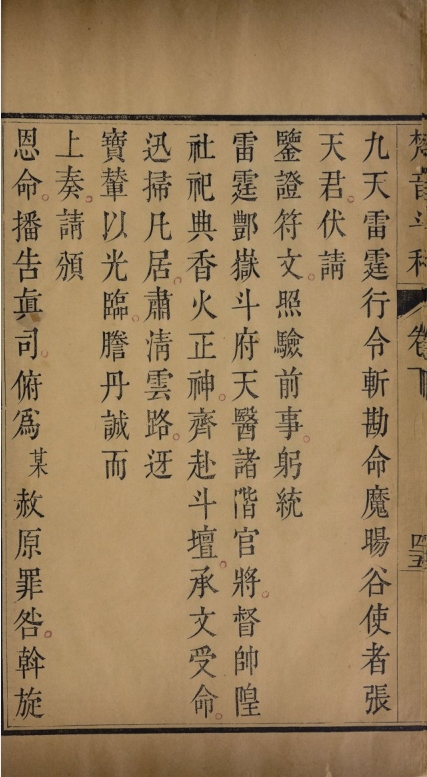 梵音斗科 卷下 四五
九天雷霆行令斬勘命魔暘谷使者張
天君伏請
鑒證符文。照驗前事。躬統
雷霆酆嶽斗府天醫諸階官將。督帥隍
社祀典香火正神。齊赴斗壇。承文受命。
迅掃凡居。肅清雲路。迓
寶輦以光臨。謄丹誠而
上奏。請頒
恩命。播告眞司。俯爲某赦原罪咎。斡旋